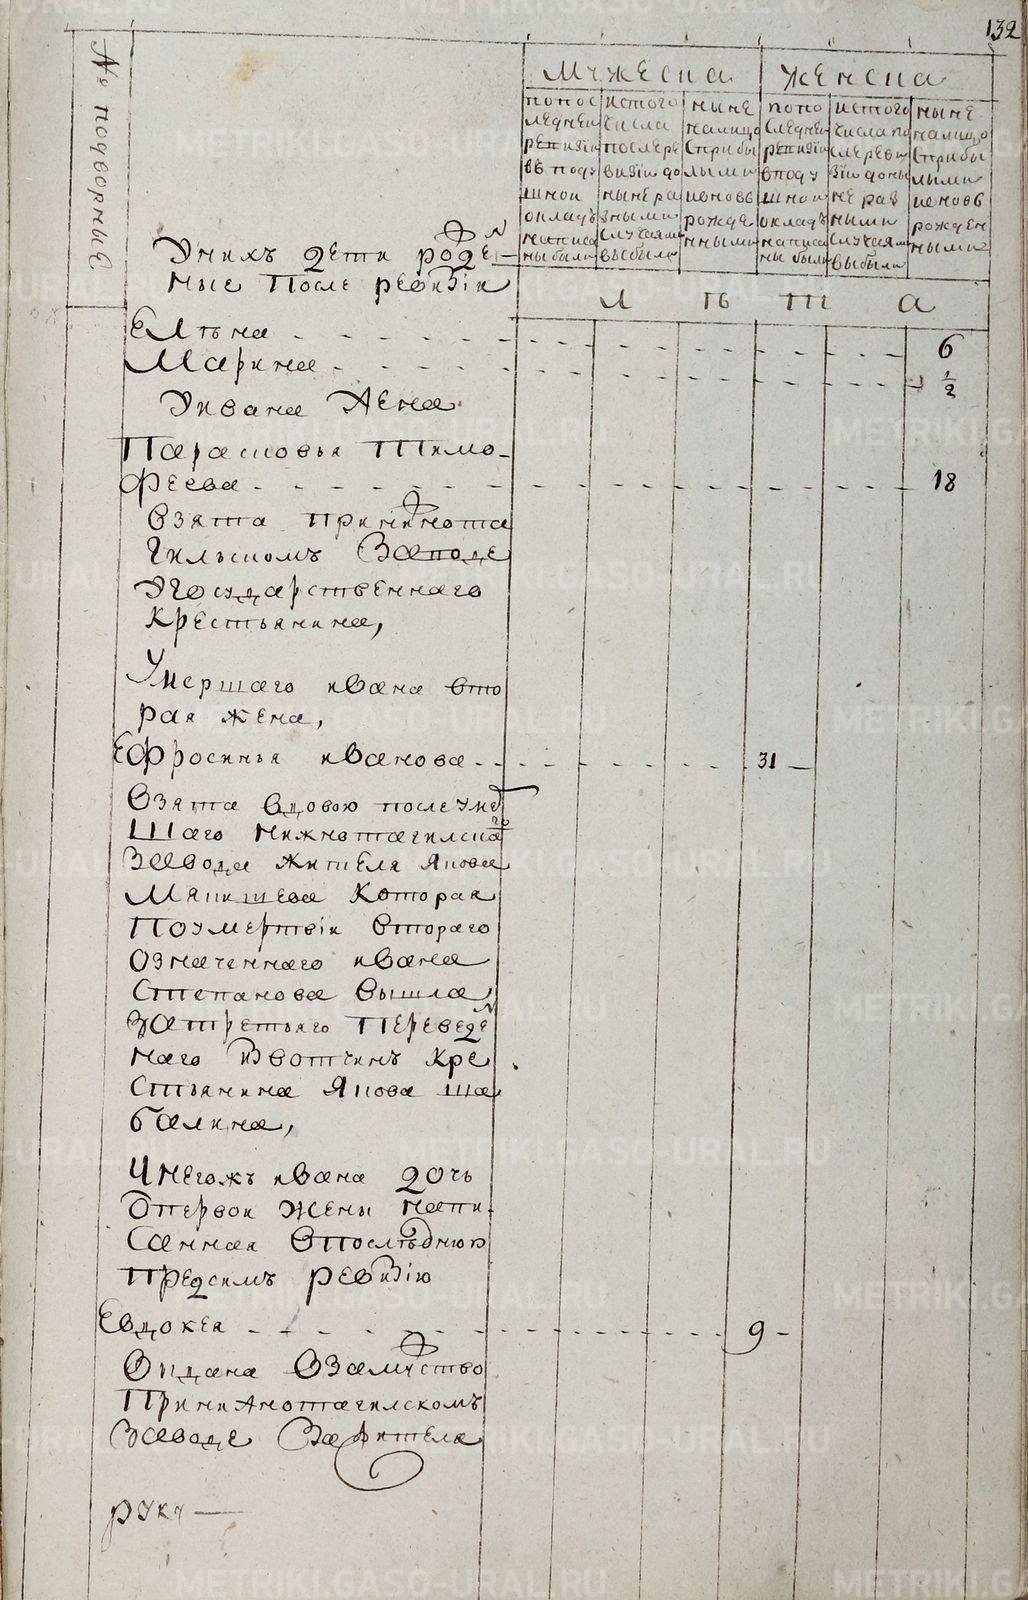 132
№ подворныЕ
мУжЕска
жЕнска
попос лЕднЕи рЕвизiи вЪ поду шнои окладЪ написа ны были
истого числа послЕрЕ визiи до нынЕ ра зными случаями выбыли
нынЕ налицо сприбы лыми иновь рождЕ нными
попо слЕднЕи рЕвизiи вподу шнои окладЪ написа ны были
истого числа по слЕрЕви зiи доны нЕ раз ными случаями выбыли
нынЕ налицо сприбы лыми иновь рождЕн ными
Унихъ дЕти рождЕн
ныЕ послЕ рЕвизiи
л ѣ т а
Елѣна 6
Марина 1/2
Уивана жЕна
Парасковья Тимо-
фЕЕва 18
взята принижнота
гильскомъ ЗаводЕ
УгосударствЕннаго
крЕстьянина,
УмЕршаго ивана вто
рая жЕна,
Ефросинья иванова 31
взята вдовою послЕ умЕр
шаго нижнотагилскаго
Завода житЕля Якова
МякишЕва Которая
ПоумЕртвiи втораго
означЕннаго ивана
СтЕпанова вышла
затрЕтьяго ПЕрЕвЕдЕн
наго ввотчинъ крЕ
стьянина Якова ша
балина,
УнЕгожъ ивана дочь
отпЕрвои жЕны напи-
санная впослѣднюю
прЕдсимъ рЕвизiю
ЕвдокЕя 9
Отдана взамужство
Принижнотагилскомъ
ЗаводЕ Зажитела
руку
METRIKI.GASO-URAL.RU